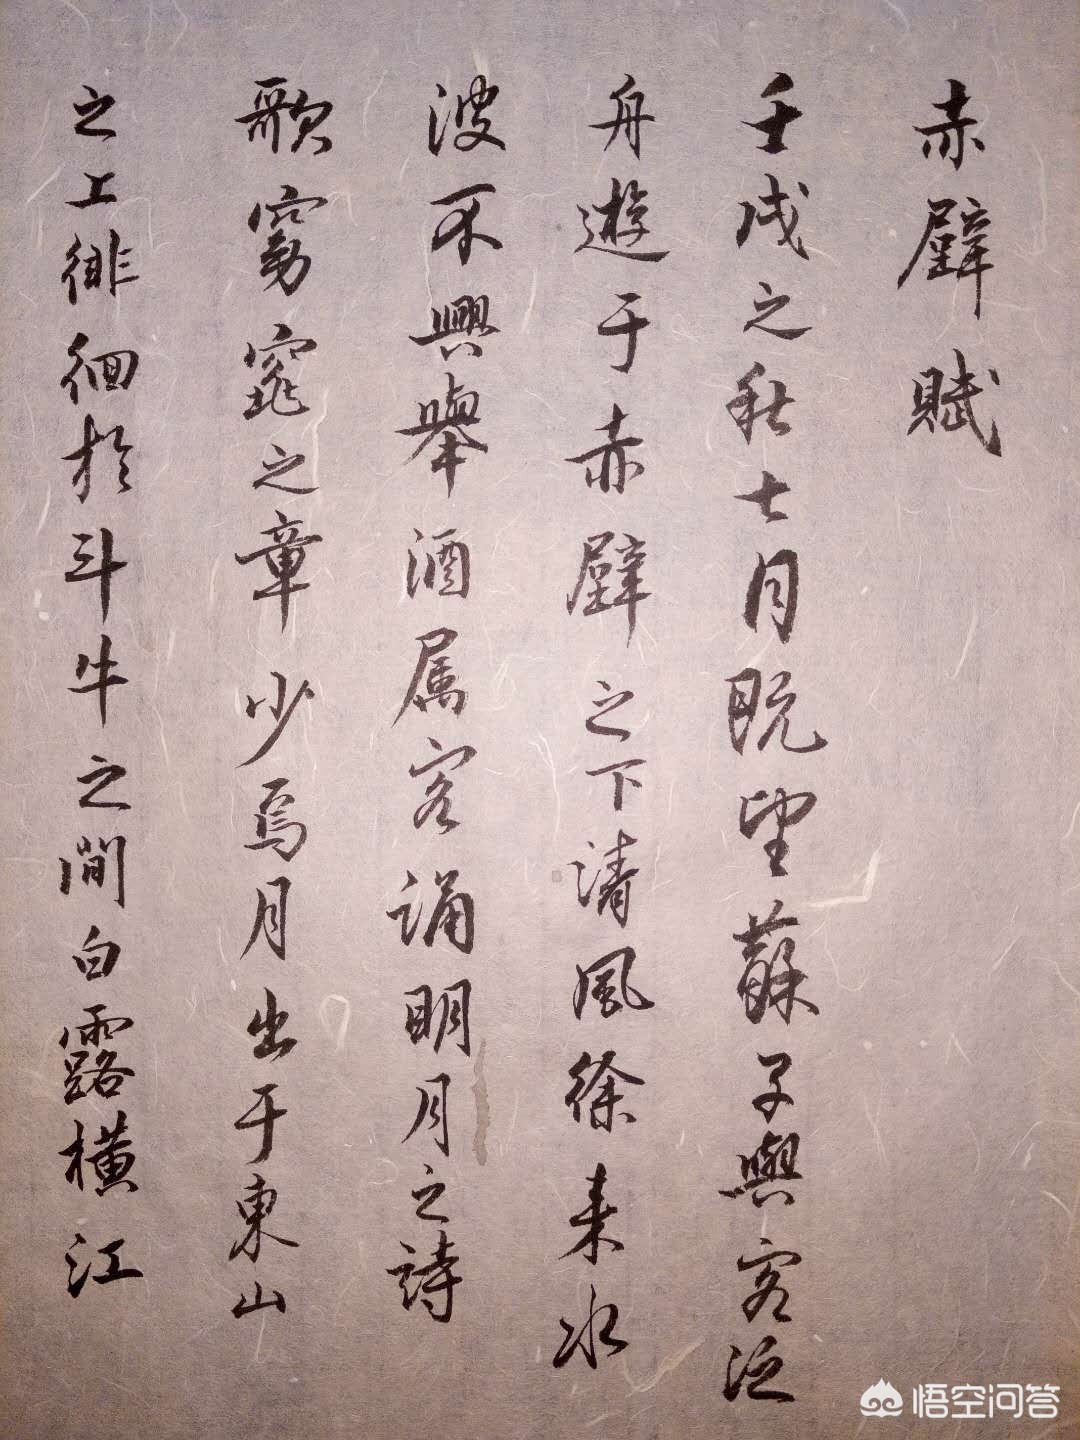 赤壁賦
壬戌之秋七月既望蘇子與客泛
舟遊于赤壁之下清風徐来水
波不興舉酒属客誦明月之詩
歌窈窕之章少焉月出于東山
之上徘徊於斗牛之間白露橫江
悟空问答